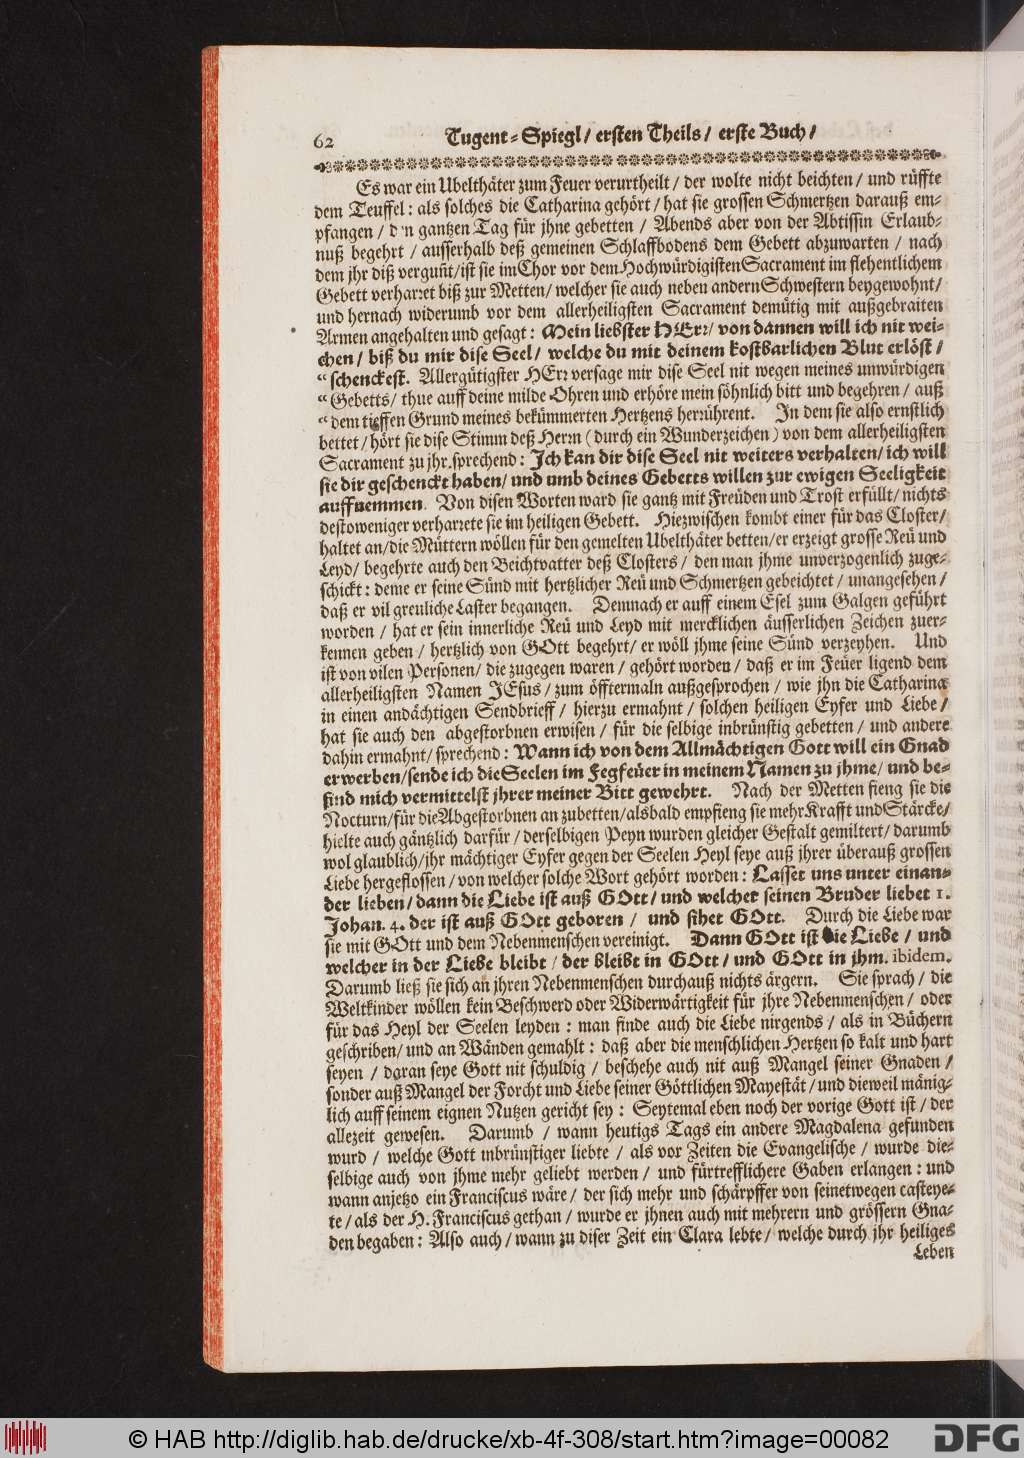 62 Tugent-Spiegl/ ersten Theils/ erste Buch/
Es war ein Ubelthäter zum Feuer verurtheilt/ der wolte nicht beichten/ und rüffte
dem Teuffel: als solches die Catharina gehört/ hat sie grossen Schmertzen darauß em-
pfangen/ d'n gantzen Tag für jhne gebetten/ Abends aber von der Abtissin Erlaub-
nuß begehrt/ ausserhalb deß gemeinen Schlaffbodens dem Gebett abzuwarten/ nach
dem jhr diß verguñt/ist sie im Chor vor dem Hochwürdigisten Sacrament im flehentlichem
Gebett verharret biß zur Metten/ welcher sie auch neben andern Schwestern beygewohnt/
und hernach widerumb vor dem allerheiligsten Sacrament demütig mit außgebraiten
Armen angehalten und gesagt: Mein liebster HErr/ von dannen will ich nit wei-
chen/ biß du mir dise Seel/ welche du mit deinem kostbarlichen Blut erlöst/
“schenckest. Allergütigster HErr versage mir dise Seel nit wegen meines unwürdigen
“Gebetts/ thue auff deine milde Ohren und erhöre mein söhnlich bitt und begehren/ auß
“dem tieffen Grund meines bekümmerten Hertzens herrührent. In dem sie also ernstlich
bettet/ hört sie dise Stimm deß Herrn (durch ein Wunderzeichen) von dem allerheiligsten
Sacrament zu jhr sprechend: Ich kan dir dise Seel nit weiters verhalten/ ich will
sie dir geschenckt haben/ und umb deines Gebetts willen zur ewigen Seeligkeit
auffnemmen. Von disen Worten ward sie gantz mit Freüden und Trost erfüllt/ nichts
destoweniger verharrete sie im heiligen Gebett. Hiezwischen kombt einer für das Closter/
haltet an/die Müttern wöllen für den gemelten Ubelthäter betten/er erzeigt grosse Reü und
Leyd/ begehrte auch den Beichtvatter deß Closters/ den man jhme unverzogenlich zuge-
schickt: deme er seine Sünd mit hertzlicher Reü und Schmertzen gebeichtet/ unangesehen/
daß er vil greuliche Laster begangen. Demnach er auff einem Esel zum Galgen geführt
worden/ hat er sein innerliche Reü und Leyd mit mercklichen äusserlichen Zeichen zuer-
kennen geben/ hertzlich von GOtt begehrt/ er wöll jhme seine Sünd verzeyhen. Und
ist von vilen Personen/ die zugegen waren/ gehört worden/ daß er im Feüer ligend dem
allerheiligsten Namen JEsus/ zum öfftermaln außgesprochen/ wie jhn die Catharina
in einen andächtigen Sendbrieff/ hierzu ermahnt/ solchen heiligen Eyfer und Liebe/
hat sie auch den abgestorbnen erwisen/ für die selbige inbrünstig gebetten/ und andere
dahin ermahnt/ sprechend: Wann ich von dem Allmächtigen Gott will ein Gnad
erwerben/sende ich die Seelen im Fegfeüer in meinem Namen zu jhme/ und be-
find mich vermittelst jhrer meiner Bitt gewehrt. Nach der Metten fieng sie die
Nocturn/für die Abgestorbnen an zubetten/alsbald empfieng sie mehr Krafft und Stärcke/
hielte auch gäntzlich darfür/ derselbigen Peyn wurden gleicher Gestalt gemiltert/ darumb
wol glaublich/jhr mächtiger Eyfer gegen der Seelen Heyl seye auß jhrer überauß grossen
Liebe hergeflossen/ von welcher solche Wort gehört worden: Lasset uns unter einan-
der lieben/ dann die Liebe ist auß GOtt/ und welcher seinen Bruder liebet 1.
Johan. 4. der ist auß GOtt geboren/ und sihet GOtt. Durch die Liebe war
sie mit GOtt und dem Nebenmenschen vereinigt. Dann GOtt ist die Liebe/ und
welcher in der Liebe bleibt/ der bleibt in GOtt/ und GOtt in jhm. ibidem.
Darumb ließ sie sich an jhren Nebenmenschen durchauß nichts ärgern. Sie sprach/ die
Weltkinder wöllen kein Beschwerd oder Widerwärtigkeit für jhre Nebenmenschen/ oder
für das Heyl der Seelen leyden: man finde auch die Liebe nirgends/ als in Büchern
geschriben/ und an Wänden gemahlt: daß aber die menschlichen Hertzen so kalt und hart
seyen/ daran seye Gott nit schuldig/ beschehe auch nit auß Mangel seiner Gnaden/
sonder auß Mangel der Forcht und Liebe seiner Göttlichen Mayestät/ und dieweil mänig-
lich auff seinem eignen Nutzen gericht sey: Seytemal eben noch der vorige Gott ist/ der
allezeit gewesen. Darumb/ wann heutigs Tags ein andere Magdalena gefunden
wurd/ welche Gott inbrünstiger liebte/ als vor Zeiten die Evangelische/ wurde die-
selbige auch von jhme mehr geliebt werden/ und fürtrefflichere Gaben erlangen: und
wann anjetzo ein Franciscus wäre/ der sich mehr und schärpffer von seinetwegen casteye-
te/ als der H. Franciscus gethan/ wurde er jhnen auch mit mehrern und grössern Gna-
den begaben: Also auch/ wann zu diser Zeit ein Clara lebte/ welche durch jhr heiliges
Leben
© HAB http://diglib.hab.de/drucke/xb-4f-308/start.htm?image=00082
DFG